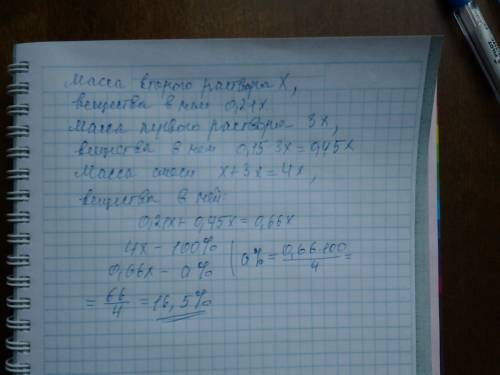 Масса второго раствора X,
вещества в нем 0,21x
Масса первого раствора 3x,
вещества в нем 0,15·3x=0,45x
Масса смеси x+3x=4x,
вещества в ней:
0,21x+0,45x=0,66x
4x - 100%
0,66x - a% ( a%=0,66·100/4=
=66/4=16,5%